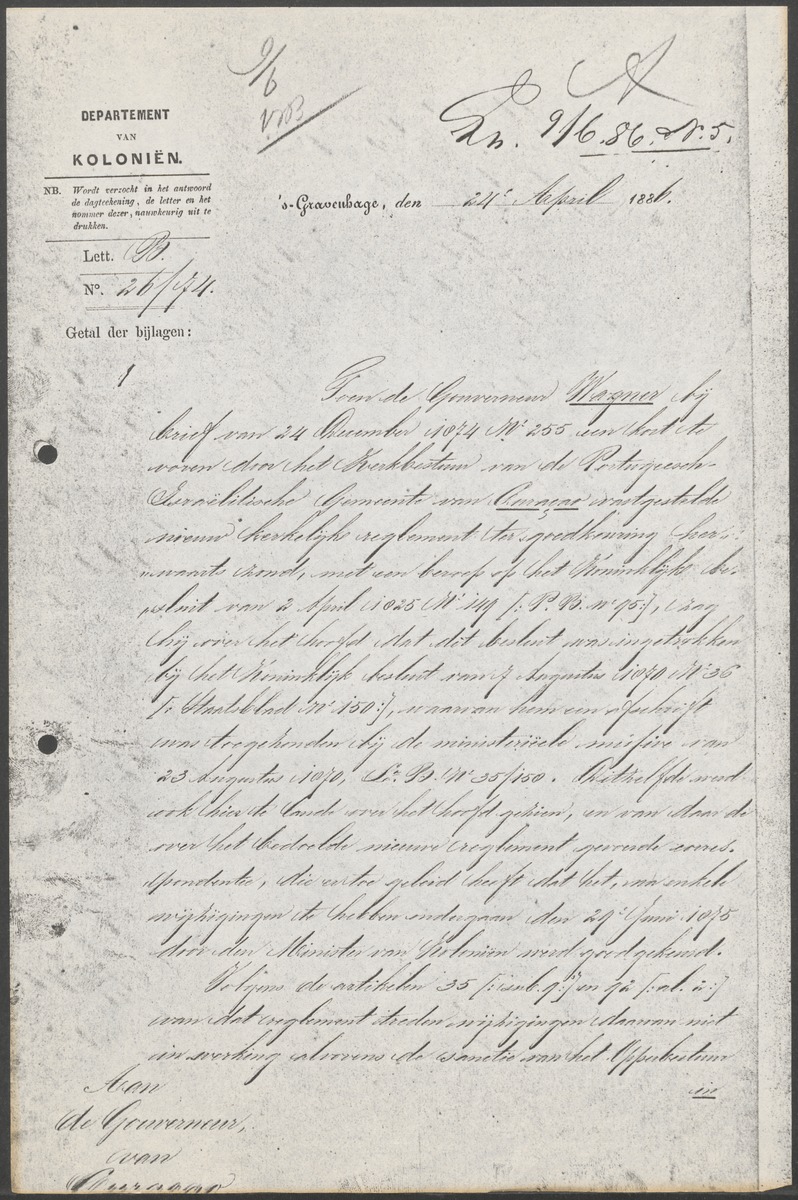 9/6
VnB
A
Zn. 9/6. 86. N. 5.
DEPARTEMENT
VAN
KOLONIËN.
NB. Wordt verzocht in het antwoord
de dagteekening, de letter en het
nommer dezer, nauwkeurig uit te
drukken.
Lett. B.
N°. 26/74.
Getal der bijlagen:
1
's-Gravenhage, den 24e April 1886.
Toen de Gouverneur Wagner bij
brief van 24 December 1874 N° 255 een kort te
voren door het Kerkbestuur van de Portugeesch-
Israëlitische Gemeente van Curaçao vastgestelde
nieuw kerkelijk reglement ter goedkeuring her-
waarts zond, met een beroep op het Koninklijk be-
sluit van 2 April 1825 N° 149 [: P. B. n° 95:], zag
hij over het hoofd dat dit besluit was ingetrokken
bij het Koninklijk besluit van 7 Augustus 1870 N° 36
[: Staatsblad N° 150:], waarvan hem een afschrift
was toegezonden bij de ministerieële missive van
23 Augustus 1870, La B. N° 35/150. Ditzelfde werd
ook hier te lande over het hoofd gezien, en van daar de
over het bedoelde nieuwe reglement gevoerde corres-
pondentie, die er toe geleid heeft dat het, na enkele
wijzigingen te hebben ondergaan den 29e Juni 1875
door den Minister van Koloniën werd goedgekeurd.
Volgens de artikelen 35 [: sub. 9:] en 92 [: al. 2:]
van dat reglement treden wijzigingen daarvan niet
in werking alvorens de sanctie van het Opperbestuur
in
Aan
de Gouverneur,
van
Curaçao